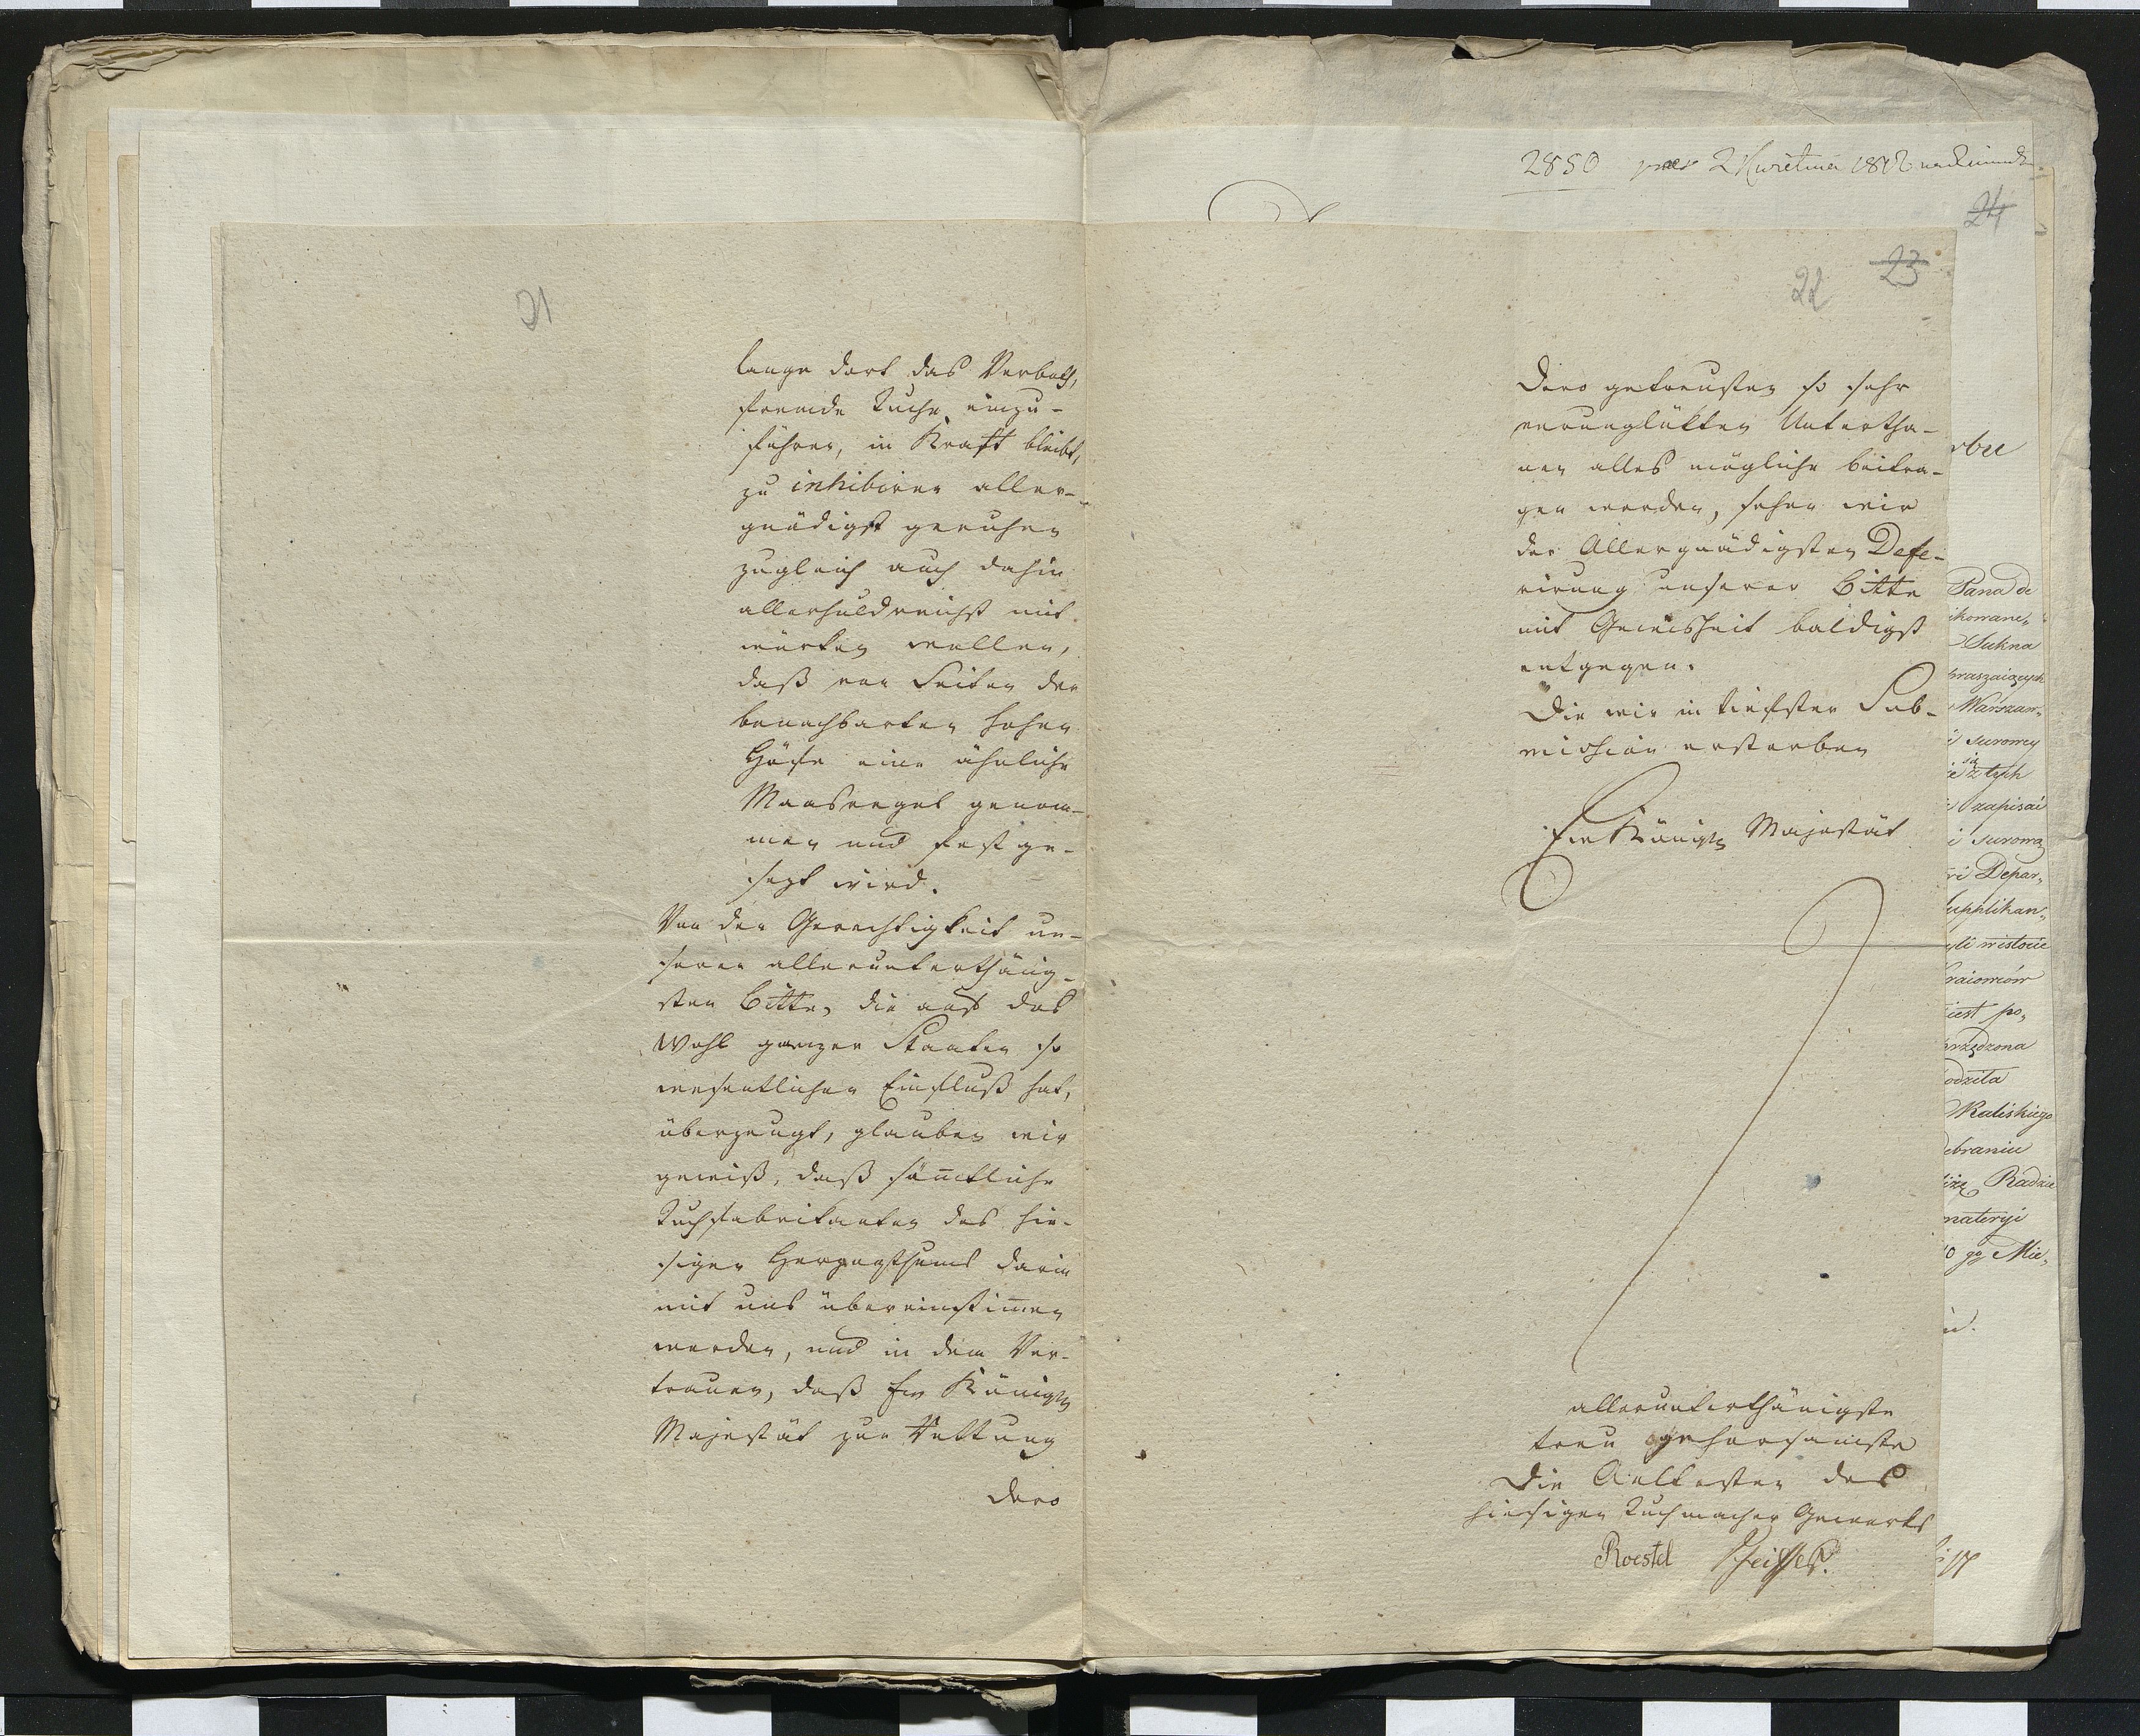 21
lange dort das Verboth,
fremde Tuche einzu-
führen, in Kraft bleibt,
zu inhibiren aller-
gnädigst geruhen
zugleich auch dahin
allerhuldreichst mit
würken wollen,
daß von Seiten der
benachbarten hohen
Höfe eine ähnliche
Maasregel genom-
men und fest ge-
sezt wird.
Von der Gerechtigkeit un-
serer allerunterthänig-
sten Bitte, die auf das
Wohl ganzer Staaten so
wesentlichen Einfluß hat,
überzeugt, glauben wir
gewiß, daß sämtliche
Tuchfabrikanten des hie-
sigen Herzogthums darin
mit uns übereinstimen
werden, und in dem Ver-
trauen, daß Ew Königl
Majestät zur Rettung
dero
2850 2 Kwietnia 1812
24
23
22
Dero getreusten so sehr
verunglükten Untertha-
nen alles mögliche beitra-
gen werden, sehen wir
der Allergnädigsten Defe-
rirung unserer Bitte
mit Gewisheit baldigst
entgegen.
Die wir in tiefster Sub-
mission ersterben
Ew Königl Majestät
allerunterthänigste
treu gehorsamste
Die Aeltesten des
hiesigen Tuchmacher Gewerks
Roestel
Pana de
ikowane„
Sukna
praszaiących
Warszaw„
surowey
się
z tych
zapisać
i surową
Depar„
upplikan„
istocie
kraiowców
iest po„
rządzona
odziła
Kaliskiego
ebraniu
Radzie
materyi
go Mie„